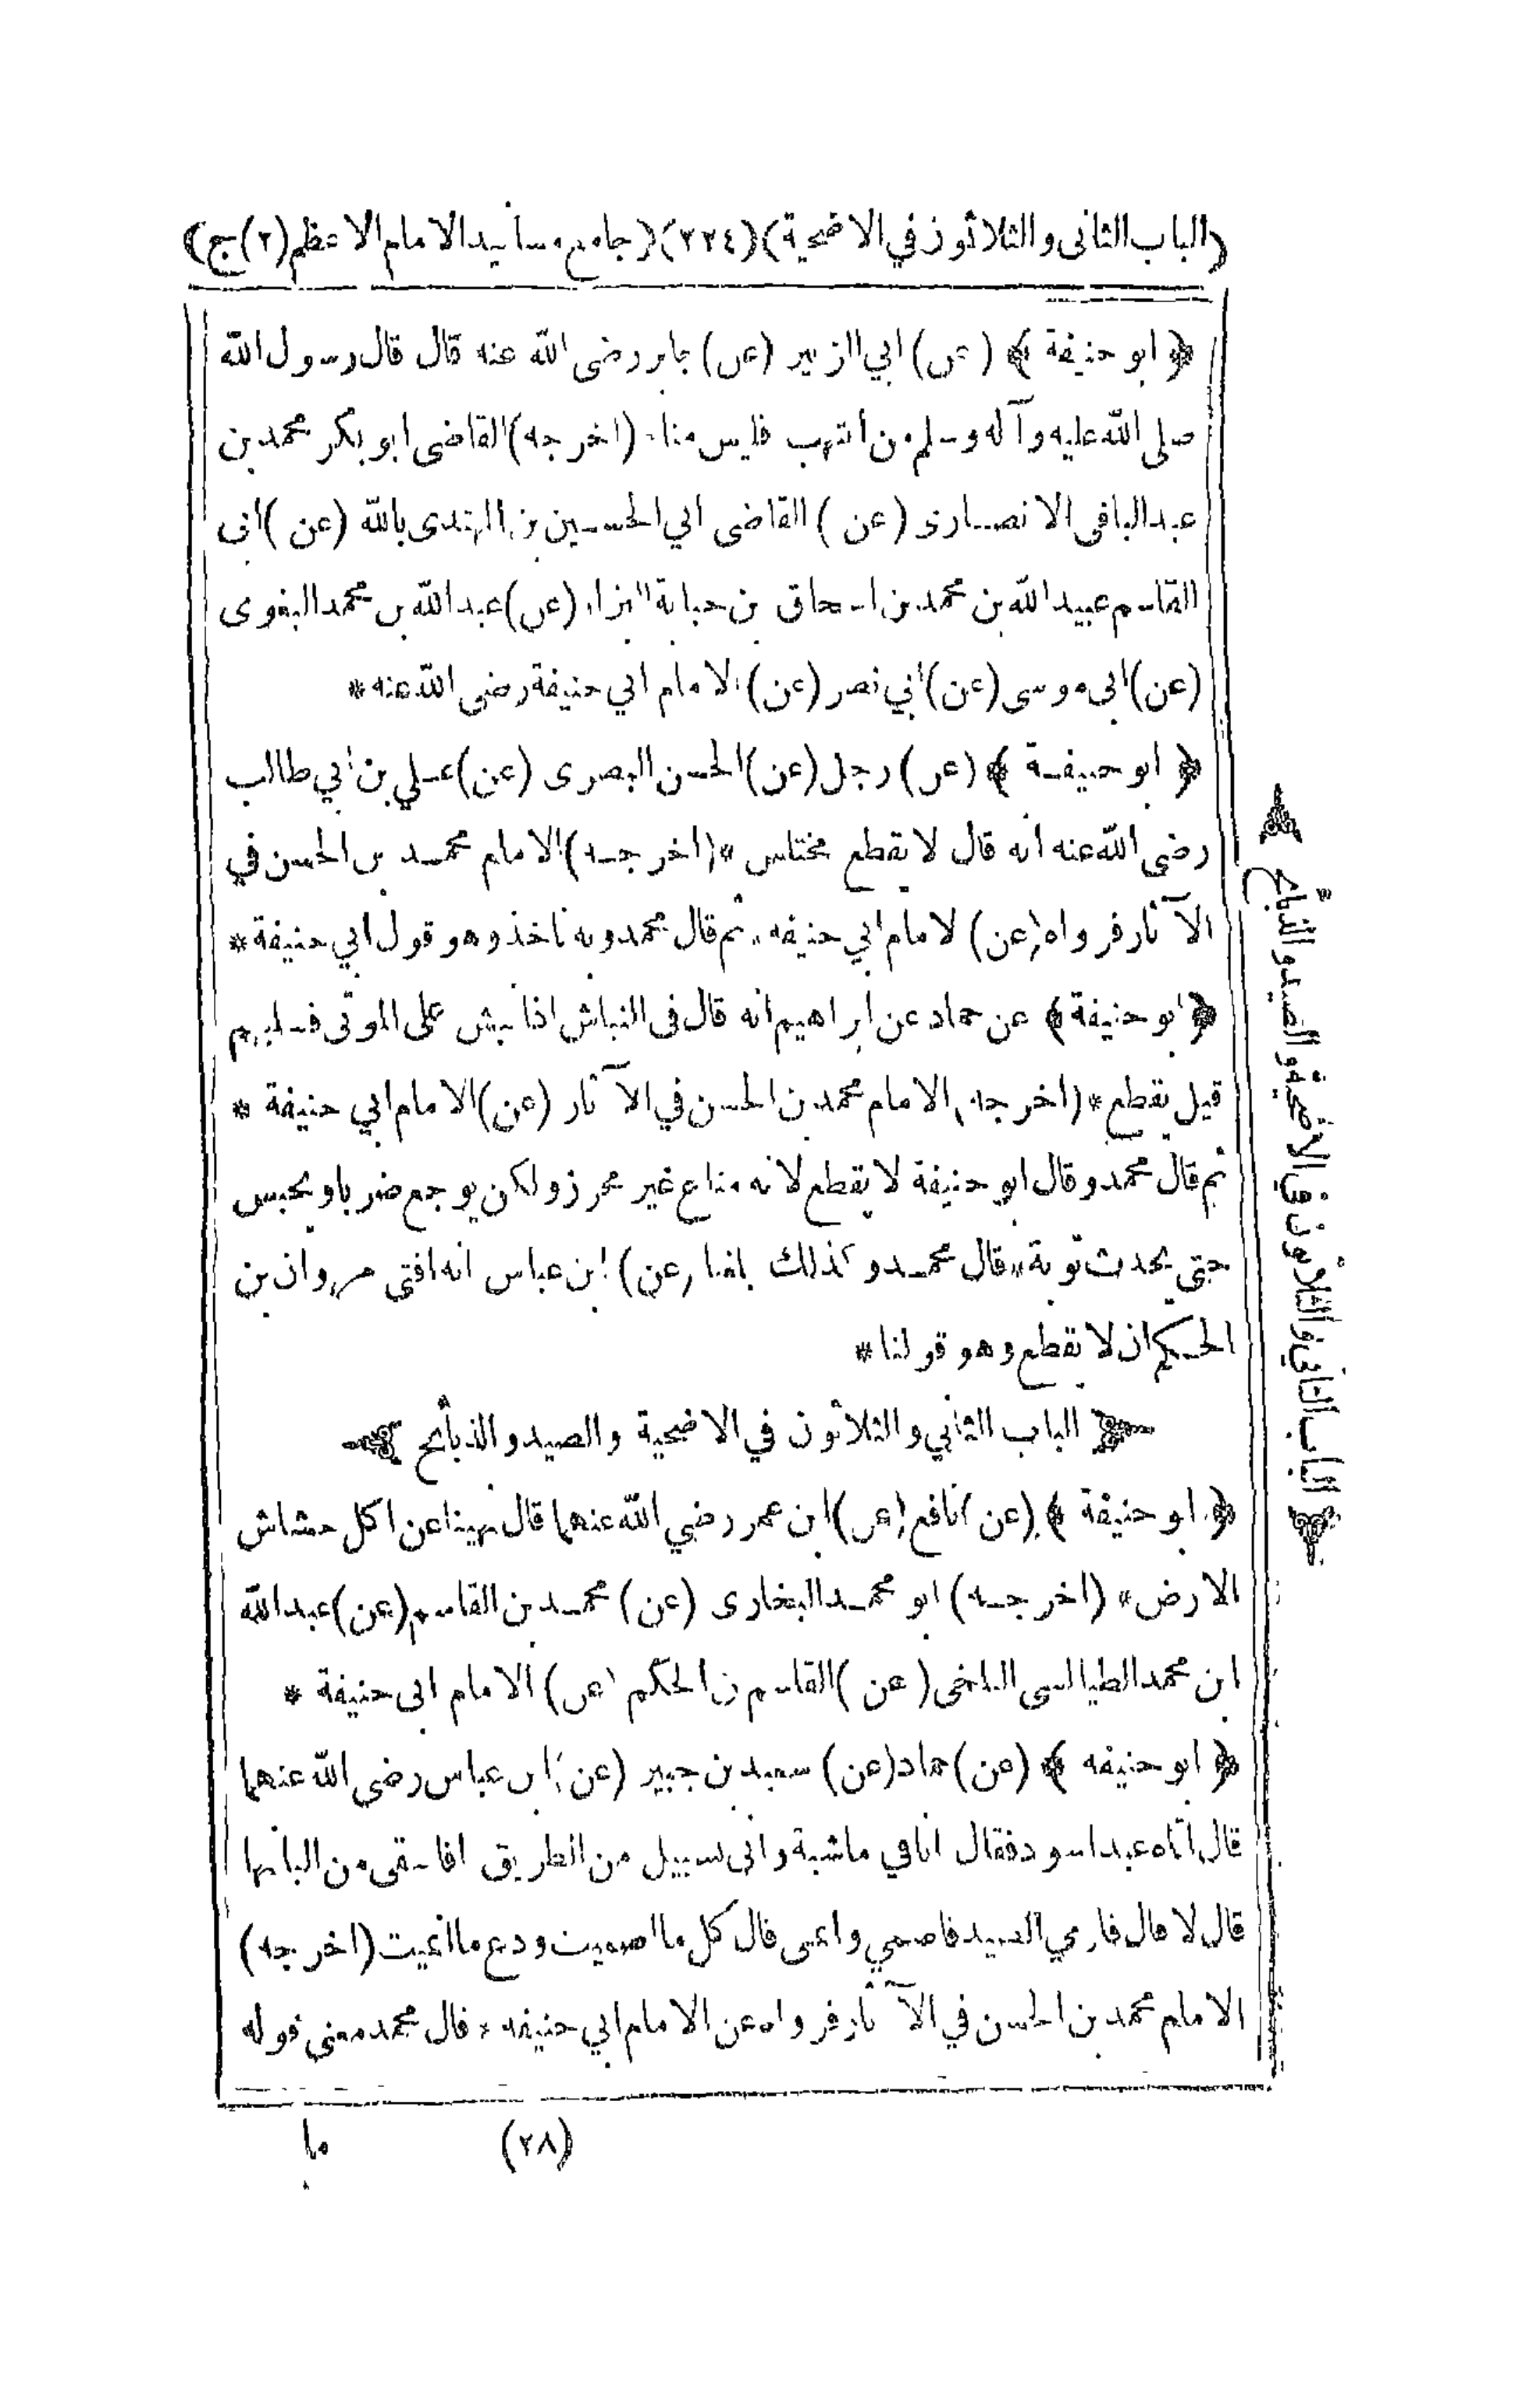 (الباب الثانى والثلاثون في الاضحية) (٢٢٤) (جامع مسانيد الامام الاعظم (٢) ج)
﴿ ابو حنيفة ﴾ (عن) ابي الزبير (عن) جابر رضى الله عنه قال قال رسول الله
صلى الله عليه وآله وسلم من انتهب فليس منا * (اخرجه) القاضى ابو بكر محمد بن
عبد الباقى الانصارى (عن) القاضى ابي الحسين بن المهتدى بالله (عن) ابى
القاسم عبيد الله بن محمد بن اسحاق بن حبابة البزاز (عن) عبد الله بن محمد البغوى
(عن) ابى موسى (عن) ابي نصر (عن) الامام ابي حنيفة رضى الله عنه *
﴿ ابو حنيفة ﴾ (عن) رجل (عن) الحسن البصرى (عن) على بن ابي طالب
رضى الله عنه انه قال لا يقطع مختلس * (اخرجه) الامام محمد بن الحسن في
الآثار فرواه (عن) الامام ابي حنيفة * ثم قال محمد وبه ناخذ وهو قول ابي حنيفة *
﴿ ابو حنيفة ﴾ عن حماد عن ابراهيم انه قال فى النباش اذا نبش على الموتى فسلبهم
قيل يقطع * (اخرجه) الامام محمد بن الحسن في الآثار (عن) الامام ابي حنيفة *
ثم قال محمد وقال ابو حنيفة لا يقطع لانه متاع غير محرز ولكن يوجع ضربا ويحبس
حتى يحدث توبة * قال محمد وكذلك بلغنا (عن) ابن عباس انه افتى مروان بن
الحكم ان لا يقطع وهو قولنا *
الباب الثاني والثلاثون في الاضحية والصيد والذبائح
﴿ ابو حنيفة ﴾ (عن) نافع (عن) ابن عمر رضي الله عنهما قال نهينا عن اكل خشاش
الارض * (اخرجه) ابو محمد البخارى (عن) محمد بن القاسم (عن) عبد الله
ابن محمد الطيالسى البلخى (عن) القاسم بن الحكم (عن) الامام ابى حنيفة *
﴿ ابو حنيفه ﴾ (عن) حماد (عن) سعيد بن جبير (عن) ابن عباس رضى الله عنهما
قال اتاه عبد اسود فقال انا في ماشية وانى لسبيل من الطريق افاسقى من البانها
قال لا قال فارمي الصيد فاصمي وانمى قال كل ما اصميت ودع ما انميت (اخرجه)
الامام محمد بن الحسن في الآثار فرواه عن الامام ابي حنيفه * قال محمد معنى قوله
(٢٨)
ما
الباب الثاني والثلاثون في الاضحية والصيد والذبائح